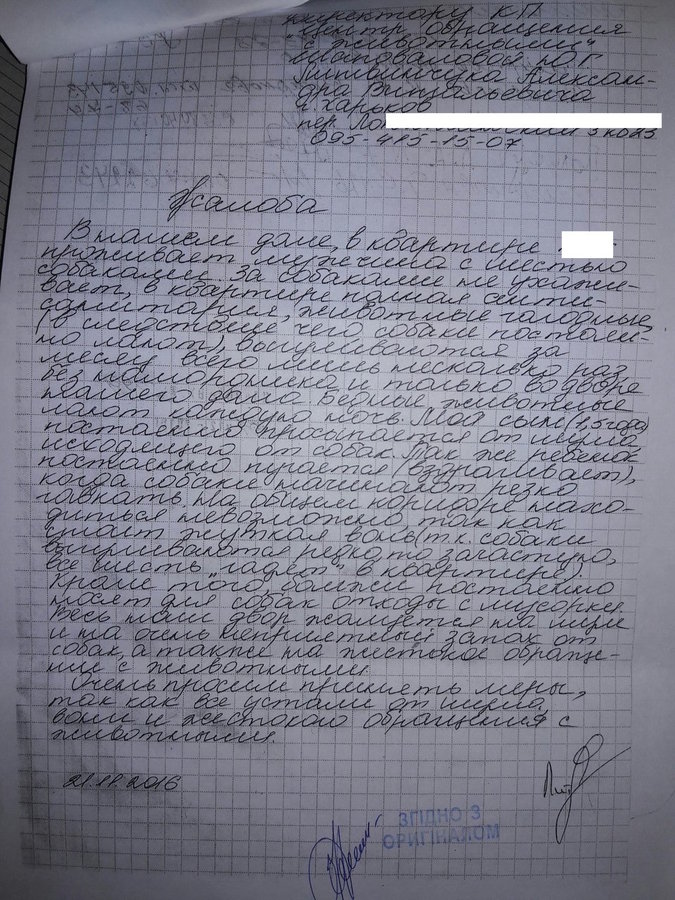 директору КП
"Центр обращения
с животными"
Шаповаловой Ю.Г
Литвинчука Алексан-
дра Витальевича
г. Харьков
пер.
095-415-15-07
Жалоба
В нашем доме, в квартире
проживает мужчина с шестью
собаками. За собаками не ухажи-
вает, в квартире полная анти-
санитария, животные голодные
(в следствие чего собаки постоян-
но лают), выгуливаются за
месяц всего лишь несколько раз
без намордника и только во дворе
нашего дома. Бедные животные
лают каждую ночь. Мой сын (1,5 года)
постоянно просыпается от шума
исходящего от собак. Так же ребенок
постоянно пугается (вздрагивает),
когда собаки начинают резко
гавкать. На общем коридоре нахо-
диться невозможно, так как
стоит жуткая вонь (т.к. собаки
выгуливаются редко, то зачастую,
все шесть "гадят" в квартире).
Кроме того бомжи постоянно
носят для собак отходы с мусорки.
Весь наш двор жалуется на шум
и на очень неприятный запах от
собак, а также на жестокое обраще-
ние с животными.
Очень просим принять меры,
так как все устали от шума
вони и жестокого обращения с
животными.
21.11.2016
ЗГІДНО З
ОРИГІНАЛОМ